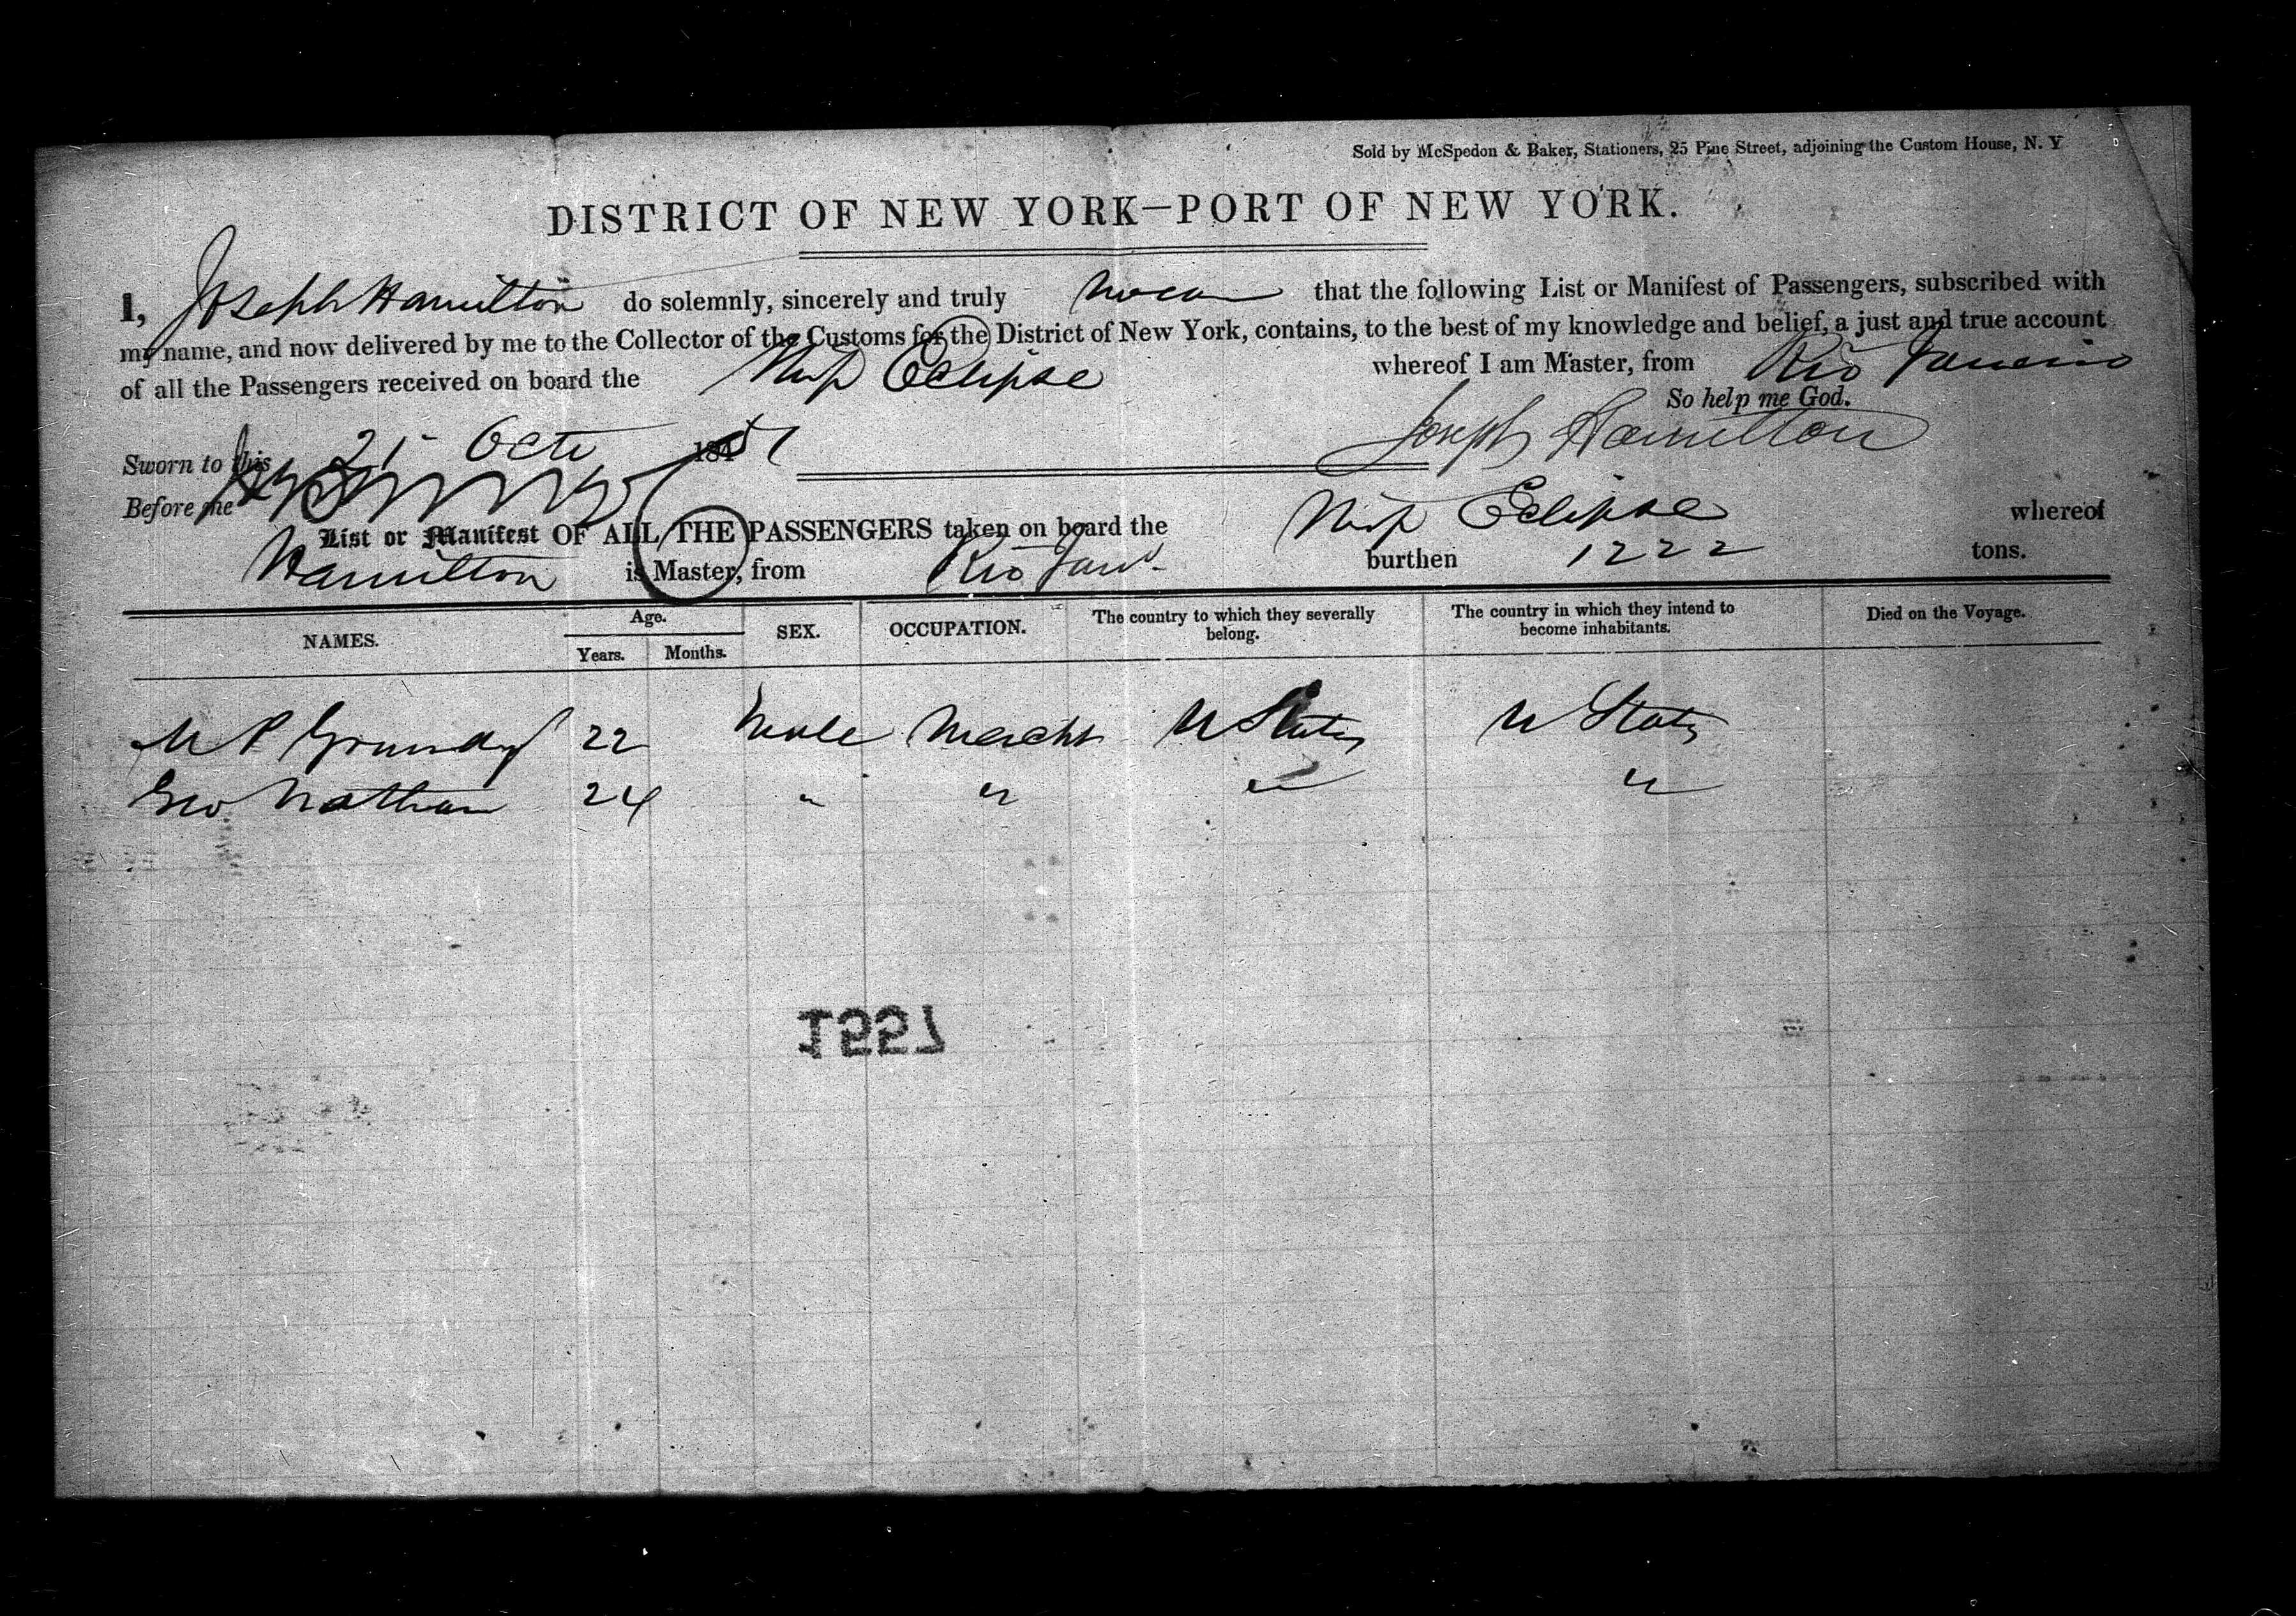 Sold by McSpedon & Baker, Stationers, 25 Pine Street, adjoining the Custom House, N. Y
DISTRICT OF NEW YORK—PORT OF NEW YORK.
I, Joseph Hamilton do solemnly, sincerely and truly swear that the following List or Manifest of Passengers, subscribed with
my name, and now delivered by me to the Collector of the Customs for the District of New York, contains, to the best of my knowledge and belief, a just and true account
of all the Passengers received on board the Ship Eclipse whereof I am Master, from Rio Janeiro
So help me God.
Sworn to this 21 Octr 1851 Joseph Hamilton
Before me
List or Manifest OF ALL THE PASSENGERS taken on board the Ship Eclipse whereof
Hamilton is Master, from Rio Jano burthen 1222 tons.
NAMES. Age. Years. Months. SEX. OCCUPATION. The country to which they severally belong. The country in which they intend to become inhabitants. Died on the Voyage.
M P Grundy 22 Male Mercht U States U States
Geo Nathan 24 " " " "
1557